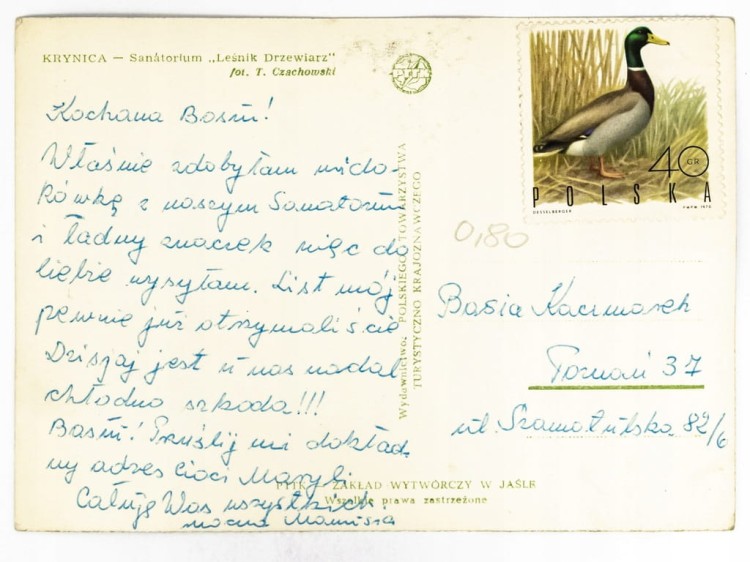 KRYNICA — Sanatorium „Leśnik Drzewiarz"
fot. T. Czachowski
Kochana Basiu!
Właśnie zdobyłam wido-
kówkę z naszym Sanatorium
i ładny znaczek więc do
Ciebie wysyłam. List mój
pewnie już otrzymaliście
Dzisiaj jest u nas nadal
chłodno szkoda!!!
Basiu! Prześlij mi dokład
ny adres Cioci Maryli
Całuję Was wszystkich.
mocno Mamusia
Wydawnictwo: POLSKIEGO TOWARZYSTWA
TURYSTYCZNO KRAJOZNAWCZEGO
PTTK — ZAKŁAD WYTWÓRCZY W JAŚLE
Wszelkie prawa zastrzeżone
40 GR
POLSKA
DESSELBERGER
PWPW 1970
0,80
Basia Kaczmarek
Poznań 37
ul. Szamotulska 82/6